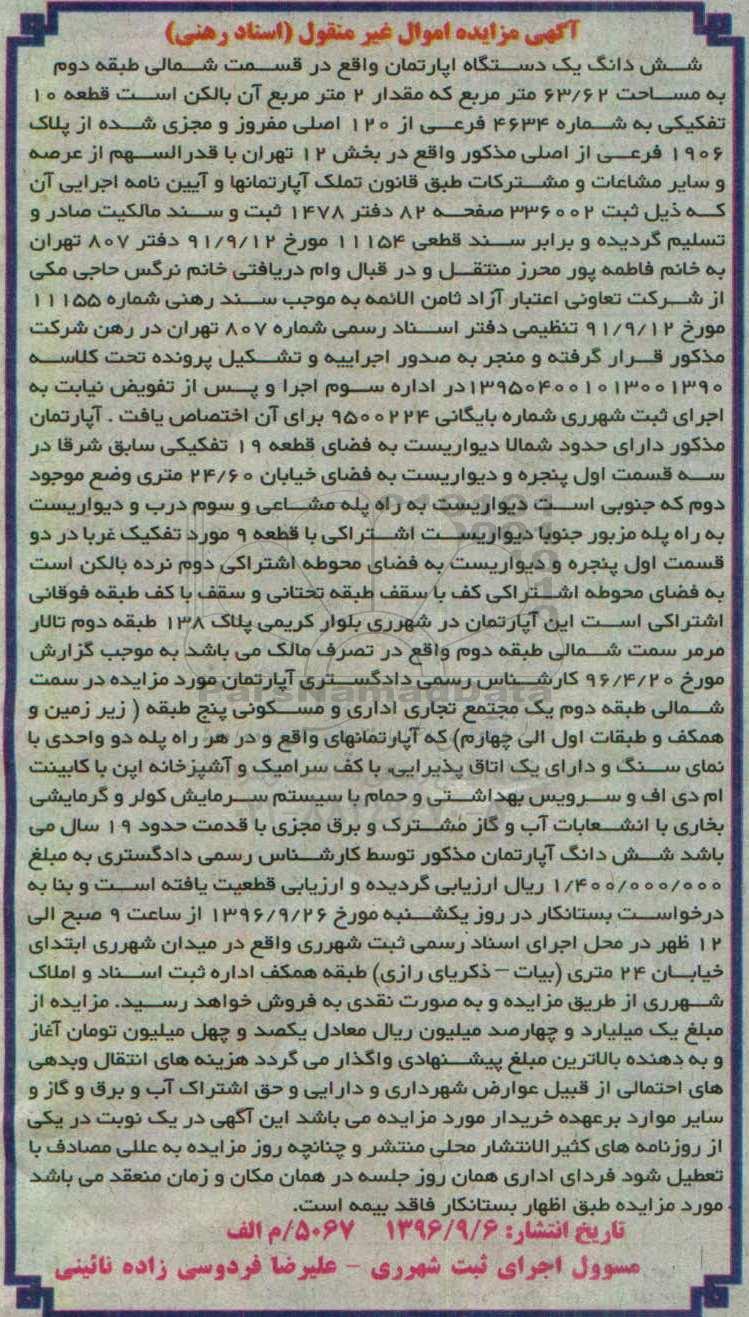 آگهی مزایده اموال غیر منقول (اسناد رهنی)
شش دانگ یک دستگاه اپارتمان واقع در قسمت شمالی طبقه دوم
به مساحت ۶۳/۶۲ متر مربع که مقدار ۲ متر مربع آن بالکن است قطعه ۱۰
تفکیکی به شماره ۴۶۳۴ فرعی از ۱۲۰ اصلی مفروز و مجزی شده از پلاک
۱۹۰۶ فرعی از اصلی مذکور واقع در بخش ۱۲ تهران با قدرالسهم از عرصه
و سایر مشاعات و مشترکات طبق قانون تملک آپارتمانها و آیین نامه اجرایی آن
که ذیل ثبت ۳۳۶۰۰۲ صفحه ۸۲ دفتر ۱۴۷۸ ثبت و سند مالکیت صادر و
تسلیم گردیده و برابر سند قطعی ۱۱۱۵۴ مورخ ۹۱/۹/۱۲ دفتر ۸۰۷ تهران
به خانم فاطمه پور محرز منتقل و در قبال وام دریافتی خانم نرگس حاجی مکی
از شرکت تعاونی اعتبار آزاد ثامن الائمه به موجب سند رهنی شماره ۱۱۱۵۵
مورخ ۹۱/۹/۱۲ تنظیمی دفتر اسناد رسمی شماره ۸۰۷ تهران در رهن شرکت
مذکور قرار گرفته و منجر به صدور اجراییه و تشکیل پرونده تحت کلاسه
۱۳۹۵۰۴۰۰۱۰۱۳۰۰۱۳۹۰در اداره سوم اجرا و پس از تفویض نیابت به
اجرای ثبت شهرری شماره بایگانی ۹۵۰۰۲۲۴ برای آن اختصاص یافت . آپارتمان
مذکور دارای حدود شمالا دیواریست به فضای قطعه ۱۹ تفکیکی سابق شرقا در
سه قسمت اول پنجره و دیواریست به فضای خیابان ۲۴/۶۰ متری وضع موجود
دوم که جنوبی است دیواریست به راه پله مشاعی و سوم درب و دیواریست
به راه پله مزبور جنوبا دیواریست اشتراکی با قطعه ۹ مورد تفکیک غربا در دو
قسمت اول پنجره و دیواریست به فضای محوطه اشتراکی دوم نرده بالکن است
به فضای محوطه اشتراکی کف با سقف طبقه تحتانی و سقف با کف طبقه فوقانی
اشتراکی است این آپارتمان در شهرری بلوار کریمی پلاک ۱۳۸ طبقه دوم تالار
مرمر سمت شمالی طبقه دوم واقع در تصرف مالک می باشد به موجب گزارش
مورخ ۹۶/۴/۲۰ کارشناس رسمی دادگستری آپارتمان مورد مزایده در سمت
شمالی طبقه دوم یک مجتمع تجاری اداری و مسکونی پنج طبقه ( زیر زمین و
همکف و طبقات اول الی چهارم) که آپارتمانهای واقع و در هر راه پله دو واحدی با
نمای سنگ و دارای یک اتاق پذیرایی، با کف سرامیک و آشپزخانه اپن با کابینت
ام دی اف و سرویس بهداشتی و حمام با سیستم سرمایش کولر و گرمایشی
بخاری با انشعابات آب و گاز مشترک و برق مجزی با قدمت حدود ۱۹ سال می
باشد شش دانگ آپارتمان مذکور توسط کارشناس رسمی دادگستری به مبلغ
۱/۴۰۰/۰۰۰/۰۰۰ ریال ارزیابی گردیده و ارزیابی قطعیت یافته است و بنا به
درخواست بستانکار در روز یکشنبه مورخ ۱۳۹۶/۹/۲۶ از ساعت ۹ صبح الی
۱۲ ظهر در محل اجرای اسناد رسمی ثبت شهرری واقع در میدان شهرری ابتدای
خیابان ۲۴ متری (بیات – ذکریای رازی) طبقه همکف اداره ثبت اسناد و املاک
شهرری از طریق مزایده و به صورت نقدی به فروش خواهد رسید. مزایده از
مبلغ یک میلیارد و چهارصد میلیون ریال معادل یکصد و چهل میلیون تومان آغاز
و به دهنده بالاترین مبلغ پیشنهادی واگذار می گردد هزینه های انتقال وبدهی
های احتمالی از قبیل عوارض شهرداری و دارایی و حق اشتراک آب و برق و گاز و
سایر موارد برعهده خریدار مورد مزایده می باشد این آگهی در یک نوبت در یکی
از روزنامه های کثیرالانتشار محلی منتشر و چنانچه روز مزایده به عللی مصادف با
تعطیل شود فردای اداری همان روز جلسه در همان مکان و زمان منعقد می باشد
مورد مزایده طبق اظهار بستانکار فاقد بیمه است.
تاریخ انتشار: ۱۳۹۶/۹/۶ ۵۰۶۷/م الف
مسوول اجرای ثبت شهرری - علیرضا فردوسی زاده نائینی
ParsNamadData